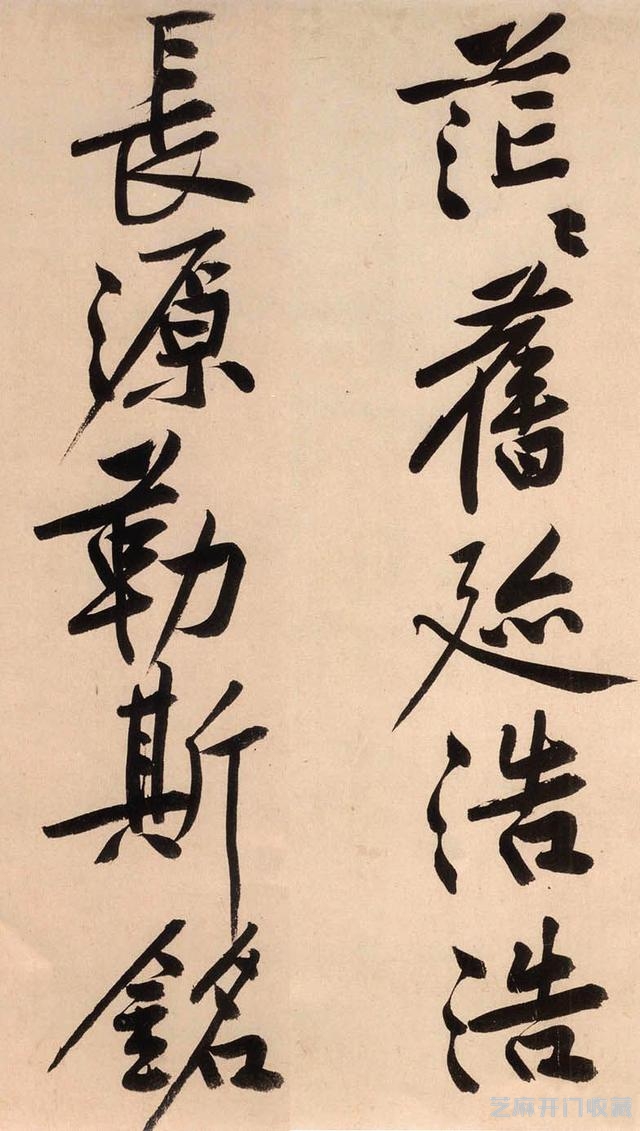 茫〻舊迹浩浩
長源勒斯銘
芝麻开门收藏